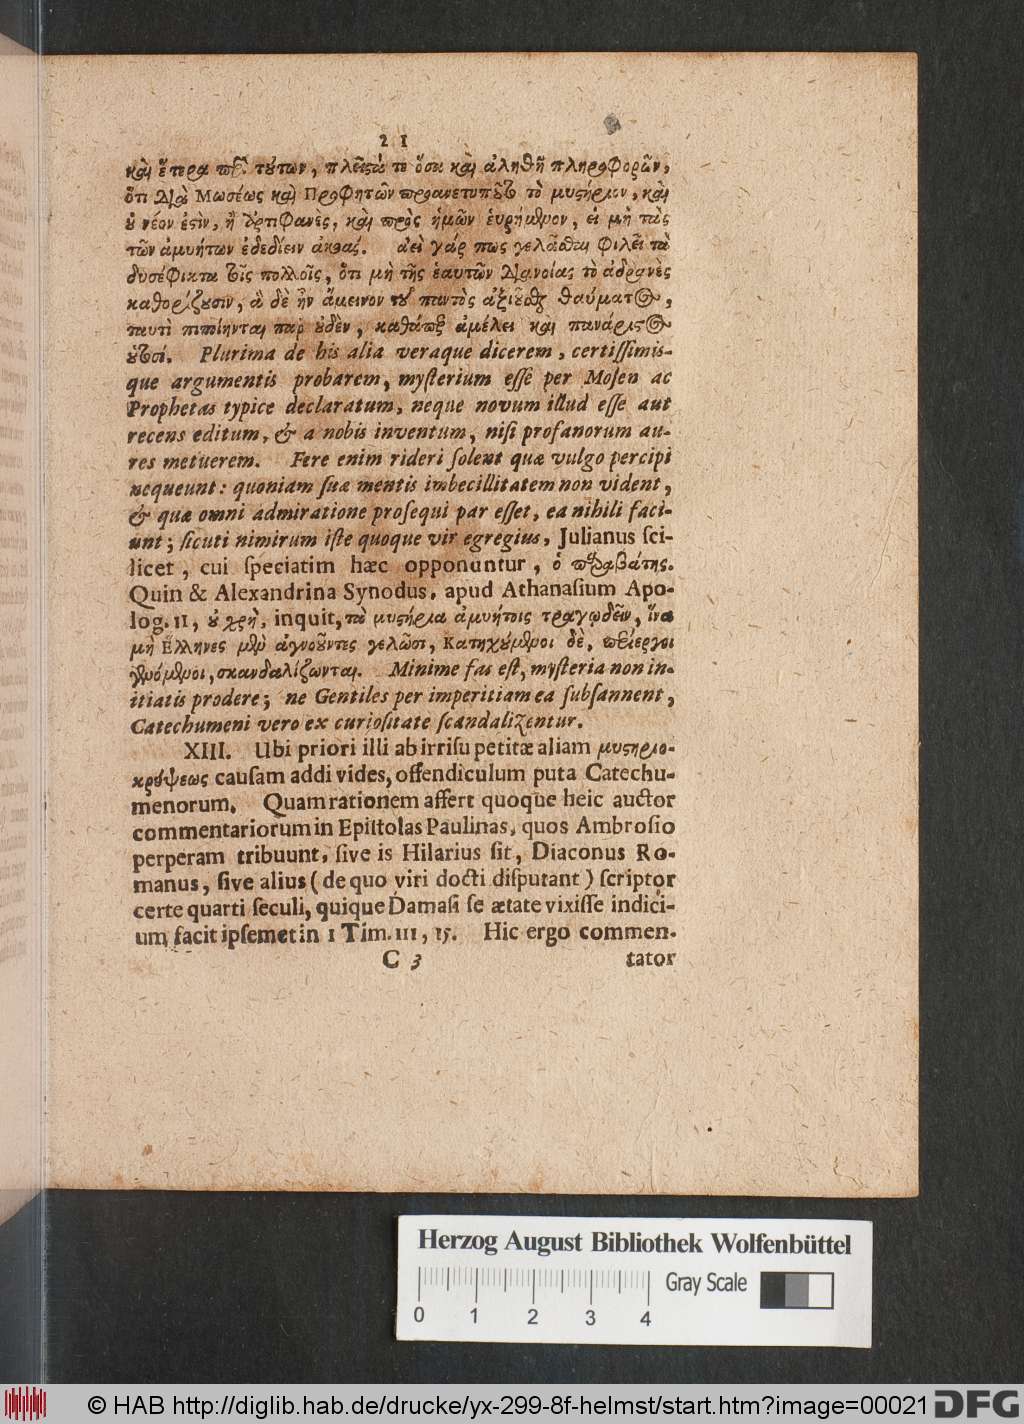 21
καὶ ἕτερα περὶ τύτων, πλεῖϛά τε ὅσα καὶ ἀληθῆ πληροφορῶν,
ὅτι διὰ Μωσέως καὶ Προφητῶν προανετυπȣ͂το τὸ μυϛήριον, καὶ
ὐ νέον ἐϛὶν, ἢ ἀρτιφανὲς, καὶ πρὸς ἡμῶν ἑυρήμενον, εἰ μὴ τὰς
τῶν ἀμυήτων ἐδεδίειν ἀκοάς. ἀεὶ γάρ πως γελᾶσθαι φιλεῖ τὰ
δυσέφικτα τοῖς πολλοῖς, ὅτι μὴ τῆς ἑαυτῶν διανοίας τὸ ἀδρανὲς
καθορίζȣσιν, ἃ δὲ ἦν ἄμεινον τȣ͂ παντὸς ἀξιȣ͂σθαι θαύματος,
ταυτὶ πεποίηνται παρ ȣ̓δὲν, καθάπερ ἀμέλει καὶ πανάριϛος
ȣ̔τοσί. Plurima de his alia veraque dicerem, certiſſimis-
que argumentis probarem, myſterium eſſe per Moſen ac
Prophetas typice declaratum, neque novum illud eſſe aut
recens editum, & a nobis inventum, niſi profanorum au-
res metuerem. Fere enim rideri ſolent quæ vulgo percipi
nequeunt: quoniam ſuæ mentis imbecillitatem non vident,
& quæ omni admiratione proſequi par eſſet, ea nihili faci-
unt; ſicuti nimirum iſte quoque vir egregius, Julianus ſci-
licet, cui ſpeciatim hæc opponuntur, ὁ παραβάτης.
Quin & Alexandrina Synodus, apud Athanaſium Apo-
log. II, ȣ̓ χρὴ, inquit, τὰ μυϛήρια ἀμυήτοις τραγῳδεῖν, ἵνα
μὴ Ἕλληνες μὲν ἀγνοοῦντες γελῶσι, Κατηχȣ́μενοι δὲ, περίεργοι
γενόμενοι, σκανδαλίζωνται. Minime fas eſt, myſteria non in-
itiatis prodere; ne Gentiles per imperitiam ea ſubſannent,
Catechumeni vero ex curioſitate ſcandalizentur.
XIII. Ubi priori illi ab irriſu petitæ aliam μυϛηριο-
κρύψεως cauſam addi vides, offendiculum puta Catechu-
menorum. Quam rationem affert quoque heic auctor
commentariorum in Epiſtolas Paulinas, quos Ambroſio
perperam tribuunt, ſive is Hilarius ſit, Diaconus Ro-
manus, ſive alius (de quo viri docti diſputant) ſcriptor
certe quarti ſeculi, quique Damaſi ſe ætate vixiſſe indici-
um facit ipſemet in I Tim. III, 15. Hic ergo commen-
C 3 tator
Herzog August Bibliothek Wolfenbüttel
Gray Scale
0 1 2 3 4
© HAB http://diglib.hab.de/drucke/yx-299-8f-helmst/start.htm?image=00021
DFG